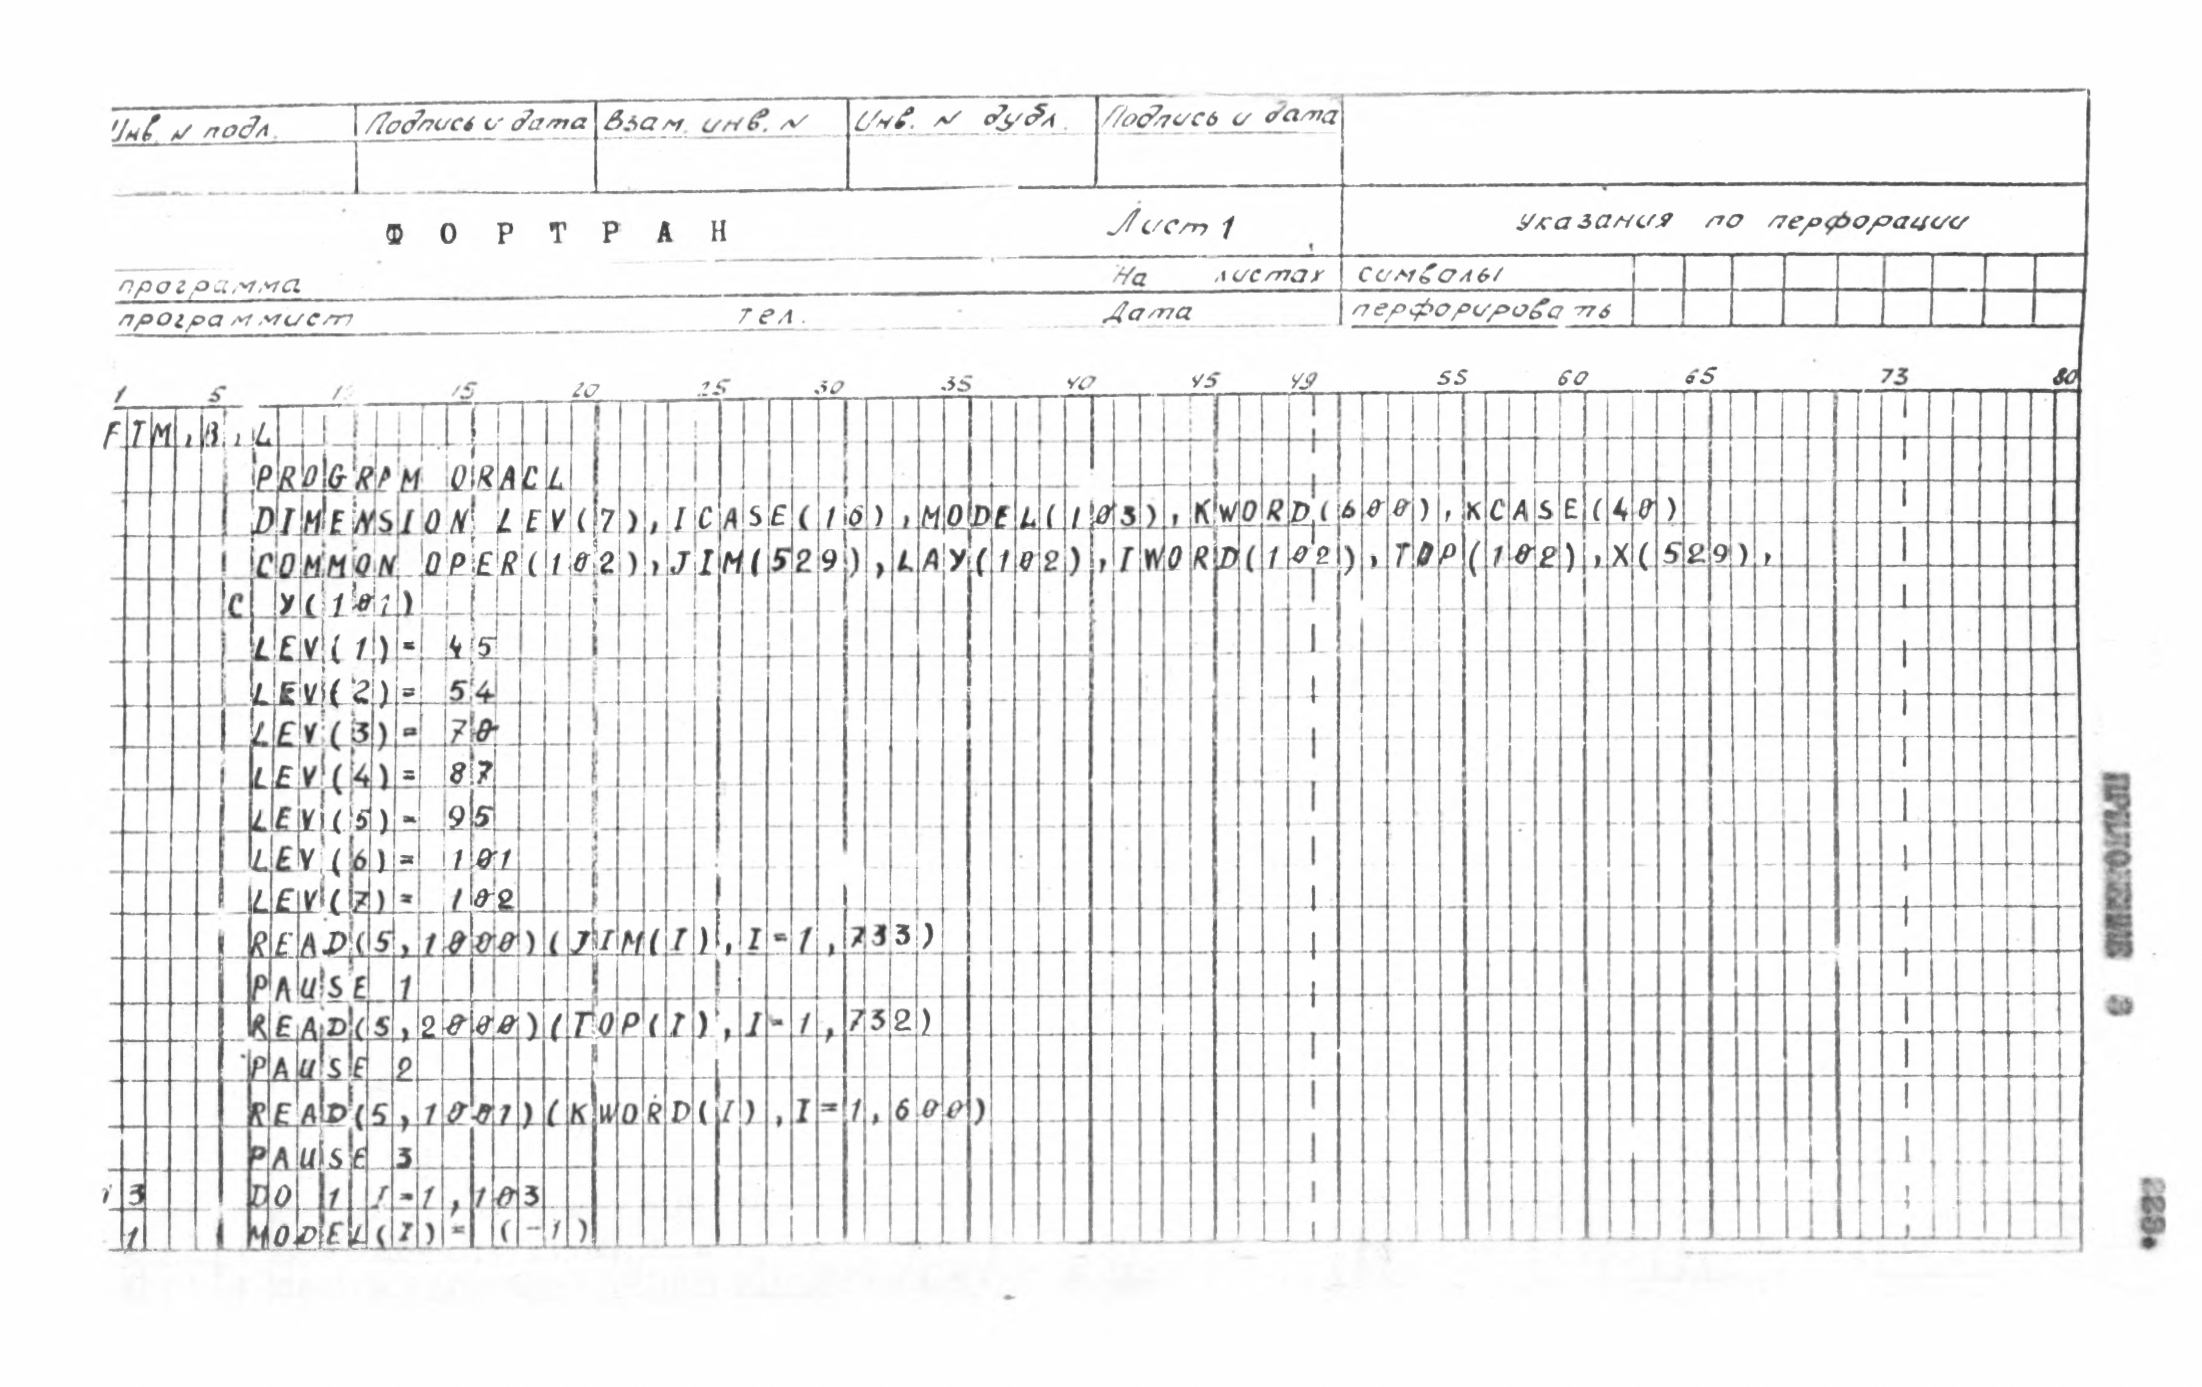 Инв. N подл. Подпись и дата Взам. инв. N Инв. N дубл. Подпись и дата
ФОРТРАН Лист 1 Указания по перфорации
программа На листах символы
программист тел. Дата перфорировать
1 5 10 15 20 25 30 35 40 45 49 55 60 65 73 80
FTM,B,L
PROGRAM ORACL
DIMENSION LEV(7),ICASE(16),MODEL(103),KWORD(600),KCASE(40)
COMMON OPER(102),JIM(529),LAY(102),IWORD(102),TOP(102),X(529),
C Y(101)
LEV(1)= 45
LEV(2)= 54
LEV(3)= 70
LEV(4)= 87
LEV(5)= 95
LEV(6)= 101
LEV(7)= 102
READ(5,1000)(JIM(I),I=1,733)
PAUSE 1
READ(5,2000)(TOP(I),I=1,732)
PAUSE 2
READ(5,1001)(KWORD(I),I=1,600)
PAUSE 3
13 DO 1 I=1,103
1 MODEL(I)= (-1)
ПРИЛОЖЕНИЕ 3